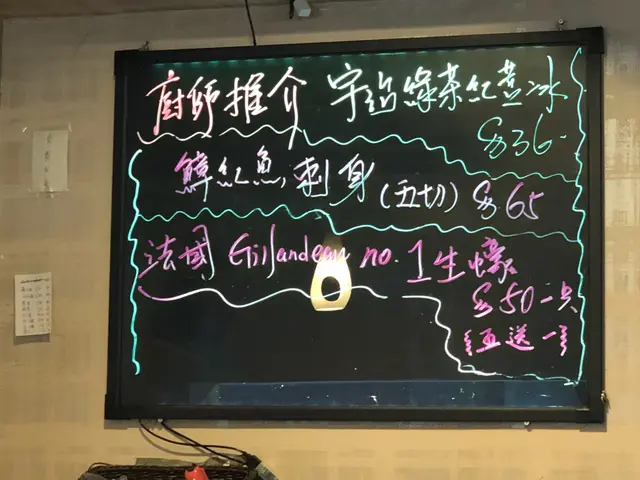 廚師推介 宇治綠茶紅荳冰
$36
鱆紅魚刺身(五切) $65
法國 Gillardeau no.1生蠔
$50一只
{五送一}